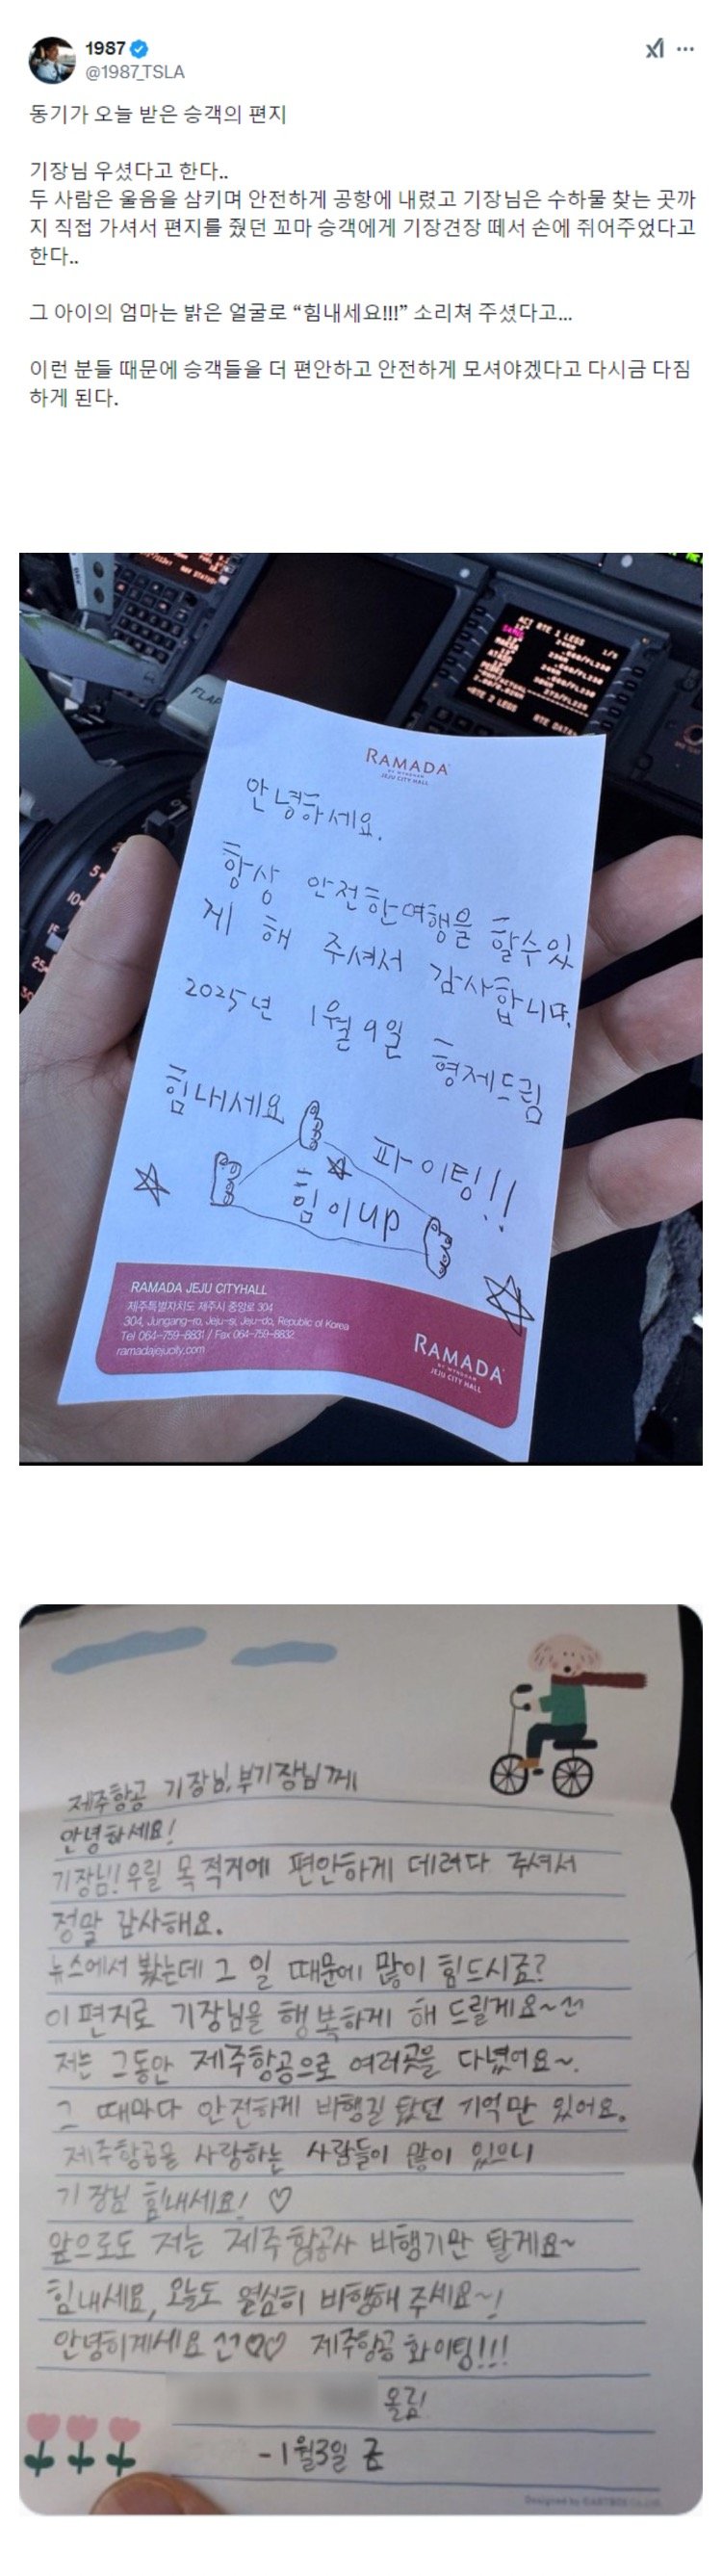 1987
@1987_TSLA
동기가 오늘 받은 승객의 편지
기장님 우셨다고 한다..
두 사람은 울음을 삼키며 안전하게 공항에 내렸고 기장님은 수하물 찾는 곳까
지 직접 가셔서 편지를 줬던 꼬마 승객에게 기장견장 떼서 손에 쥐어주었다고
한다..
그 아이의 엄마는 밝은 얼굴로 “힘내세요!!!” 소리쳐 주셨다고...
이런 분들 때문에 승객들을 더 편안하고 안전하게 모셔야겠다고 다시금 다짐
하게 된다.
ACT RTE 1 LEGS 1/3
FLAP
RTE 2 LEGS
RTE DATA
RAMADA
BY WYNDHAM
JEJU CITY HALL
안녕하세요.
항상 안전한여행을 할수있
게 해 주셔서 감사합니다.
2025년 1월 9일 형제드림
힘내세요
파이팅!!
힘이up
RAMADA JEJU CITYHALL
제주특별자치도 제주시 중앙로 304
304, Jungang-ro, Jeju-si, Jeju-do, Republic of Korea
Tel 064-759-8831 / Fax 064-759-8832
ramadajejucity.com
RAMADA
BY WYNDHAM
JEJU CITY HALL
제주항공 기장님, 부기장님께
안녕하세요!
기장님! 우릴 목적지에 편안하게 데려다 주셔서
정말 감사해요.
뉴스에서 봤는데 그 일 때문에 많이 힘드시죠?
이 편지로 기장님을 행복하게 해 드릴게요~
저는 그동안 제주항공으로 여러곳을 다녔어요~.
그 때마다 안전하게 비행길 탔던 기억만 있어요.
제주항공을 사랑하는 사람들이 많이 있으니
기장님 힘내세요! ♡
앞으로도 저는 제주항공사 비행기만 탈게요~
힘내세요, 오늘도 열심히 비행해 주세요~!
안녕히계세요 ♡♡ 제주항공 화이팅!!!
올림!
-1월3일 금